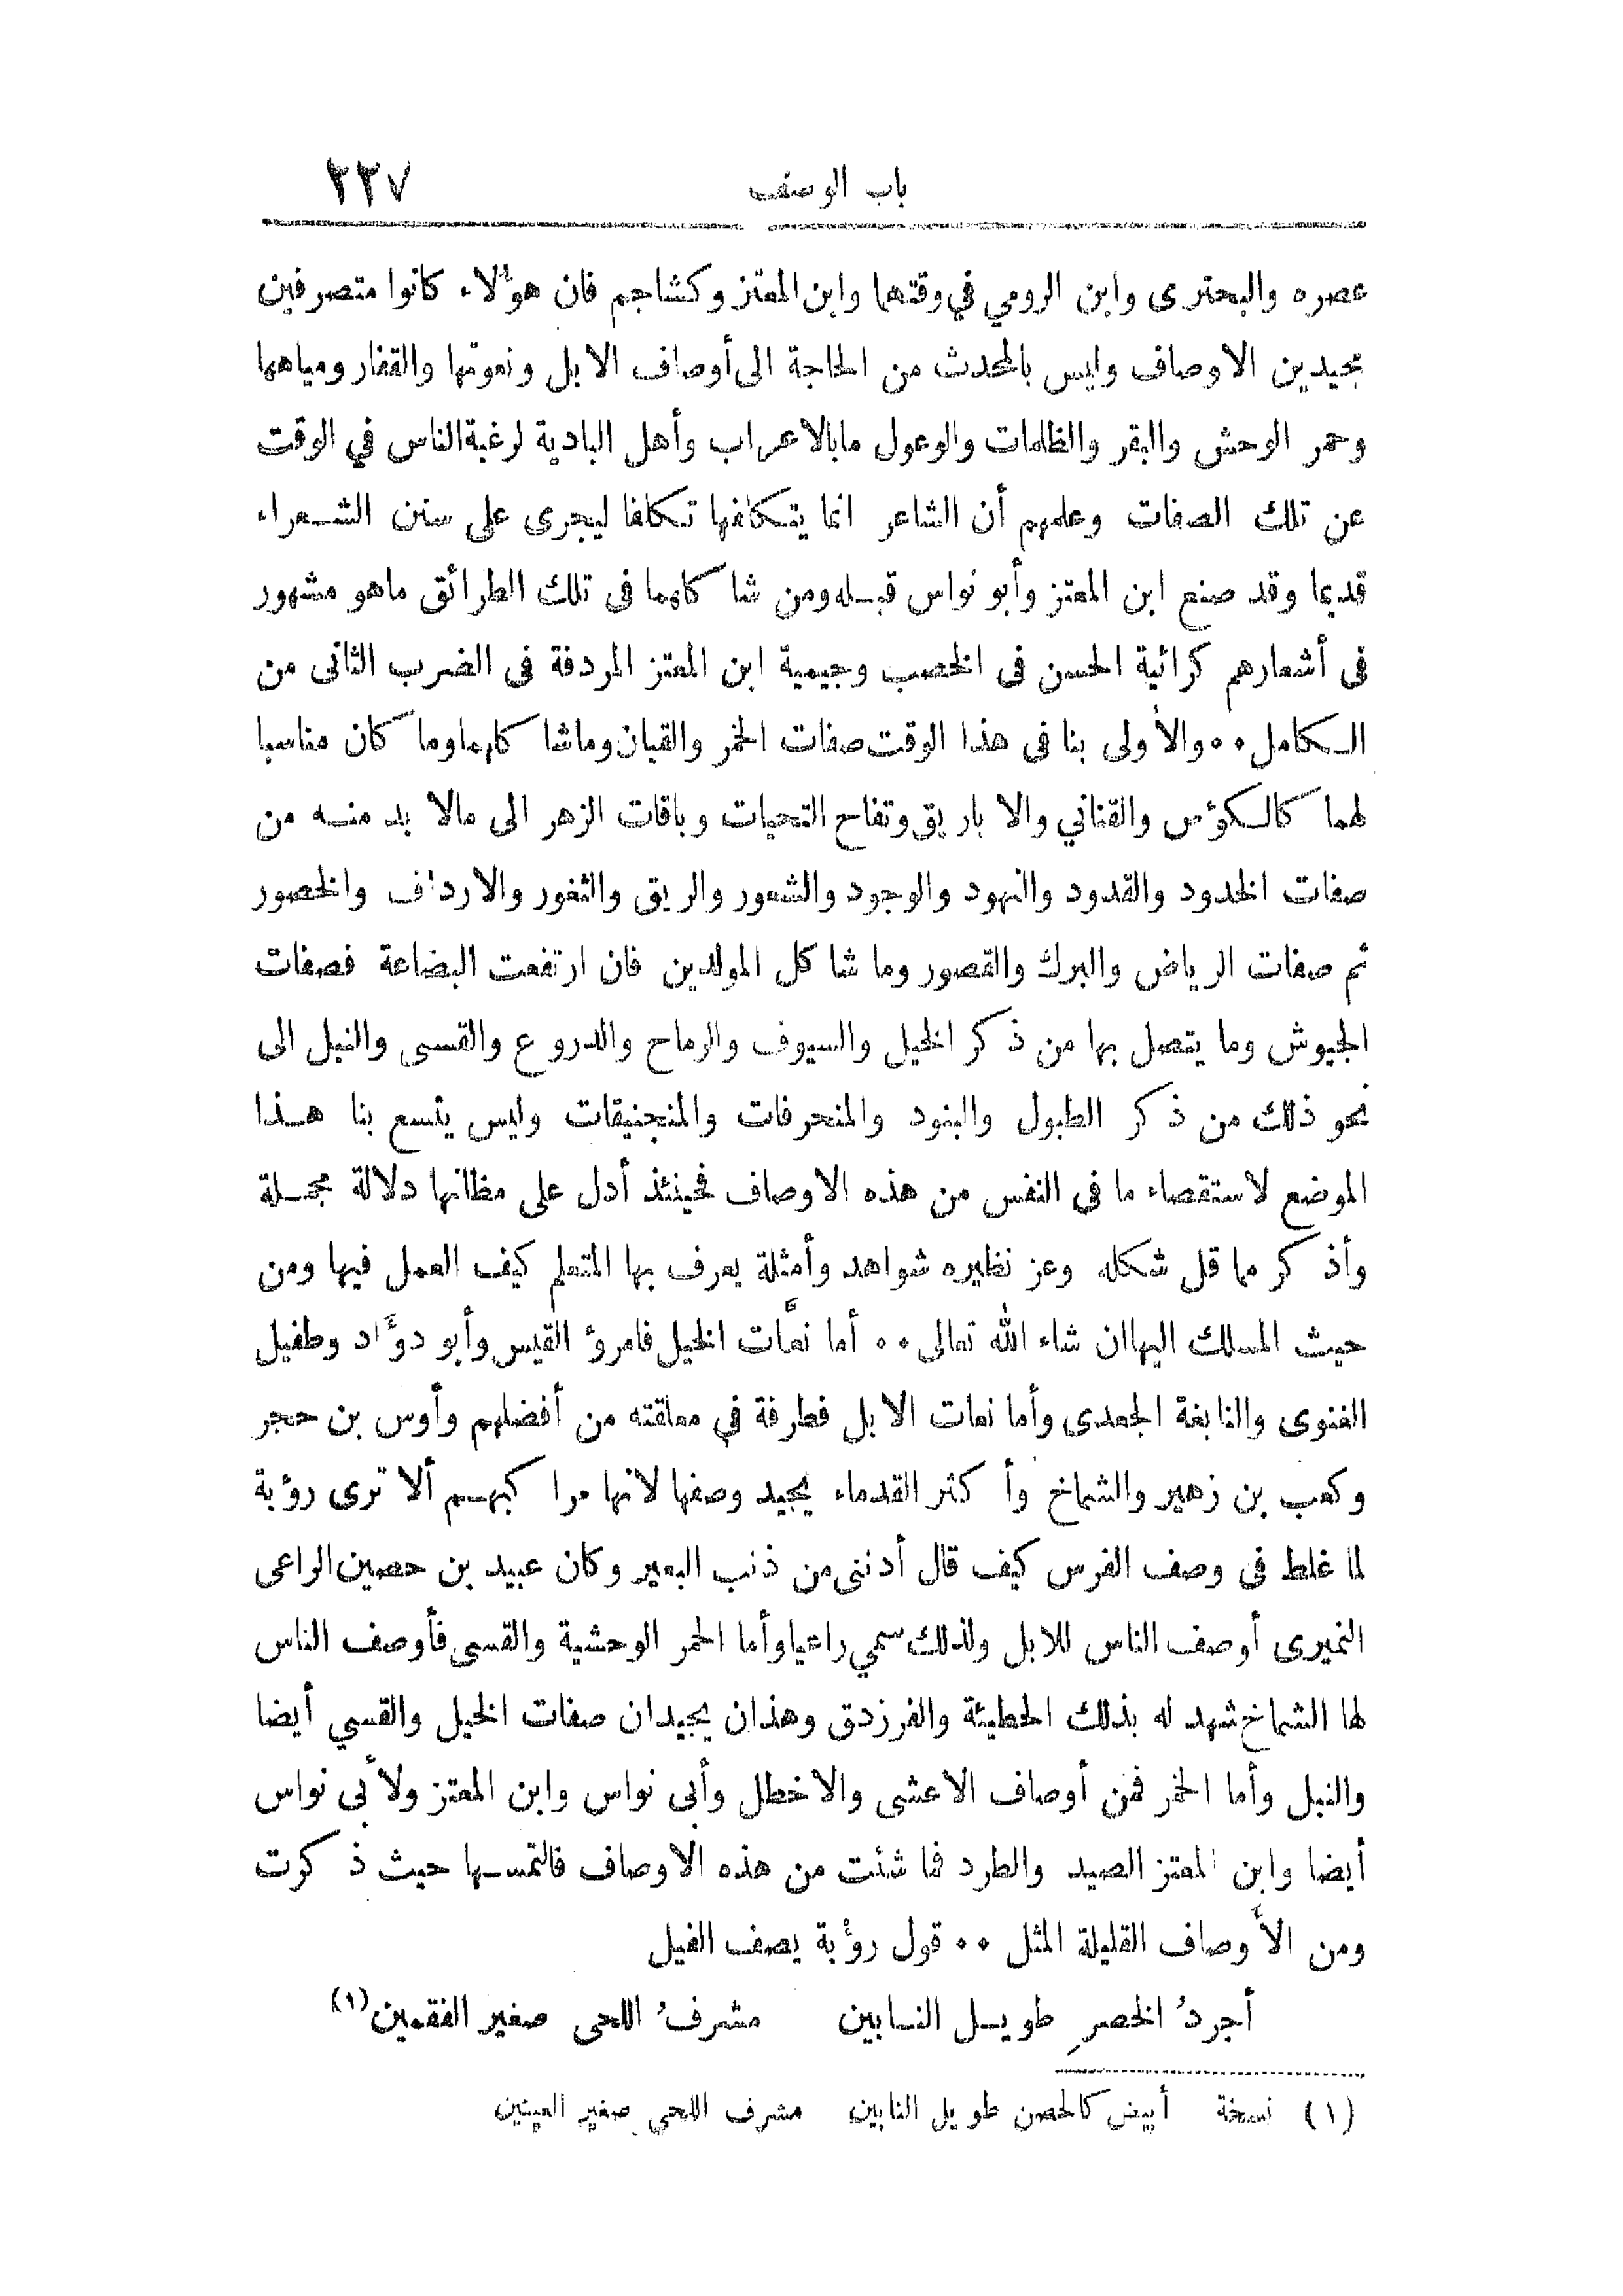 باب الوصف ٢٢٧
عصره والبحترى وابن الرومي في وقتهما وابن المعتز وكشاجم فان هؤلاء كانوا متصرفين
مجيدين الاوصاف وليس بالمحدث من الحاجة الى أوصاف الابل ونعوتها والقفار ومياهها
وحمر الوحش والبقر والظلمات والوعول مابالاعراب وأهل البادية لرغبة الناس في الوقت
عن تلك الصفات وعلمهم أن الشاعر انما يتكلفها تكلفا ليجرى على سنن الشعراء
قديما وقد صنع ابن المعتز وأبو نواس قبله ومن شاكلهما فى تلك الطرائق ماهو مشهور
فى أشعارهم كرائية الحسن فى الخصيب وجيمية ابن المعتز المردفة فى الضرب الثانى من
الكامل ٠٠ والأولى بنا فى هذا الوقت صفات الخمر والقيان وماشاكلهما وما كان مناسبا
لهما كالكؤس والقنانى والاباريق وتفاح التحيات وباقات الزهر الى مالا بد منه من
صفات الخدود والقدود والنهود والوجوه والشعور والريق والثغور والارداف والخصور
ثم صفات الرياض والبرك والقصور وما شاكل المولدين فان ارتفعت البضاعة فصفات
الجيوش وما يتصل بها من ذكر الخيل والسيوف والرماح والدروع والقسى والنبل الى
نحو ذلك من ذكر الطبول والبنود والمنحرفات والمنجنيقات وليس يتسع بنا هذا
الموضع لاستقصاء ما فى النفس من هذه الاوصاف فحينئذ أدل على مظانها دلالة مجملة
وأذكر مما قل شكله وعز نظيره شواهد وأمثلة يعرف بها المتعلم كيف العمل فيها ومن
حيث المسلك اليها ان شاء الله تعالى ٠٠ أما نعَّات الخيل فامرؤ القيس وأبو دؤاد وطفيل
الغنوى والنابغة الجعدى وأما نعات الابل فطرفة في معلقته من أفضلهم وأوس بن حجر
وكعب بن زهير والشماخ وأكثر القدماء يجيد وصفها لانها مراكبهم ألا ترى رؤبة
لما غلط فى وصف الفرس كيف قال أدننى من ذنب البعير وكان عبيد بن حصين الراعى
النميرى أوصف الناس للابل ولذلك سمي راعيا وأما الحمر الوحشية والقسى فأوصف الناس
لها الشماخ شهد له بذلك الحطيئة والفرزدق وهذان يجيدان صفات الخيل والقسي أيضا
والنبل وأما الخمر فمن أوصاف الاعشى والاخطل وأبى نواس وابن المعتز ولأبى نواس
أيضا وابن المعتز الصيد والطرد فما شئت من هذه الاوصاف فالتمسها حيث ذكرت
ومن الأوصاف القليلة المثل ٠٠ قول رؤبة يصف الفيل
أجردُ الخصرِ طويل النابين مشرفُ اللحى صغير الفقمين (١)
(١) نسخة أبيض كالحصن طويل النابين مشرف اللحى صغير العينين